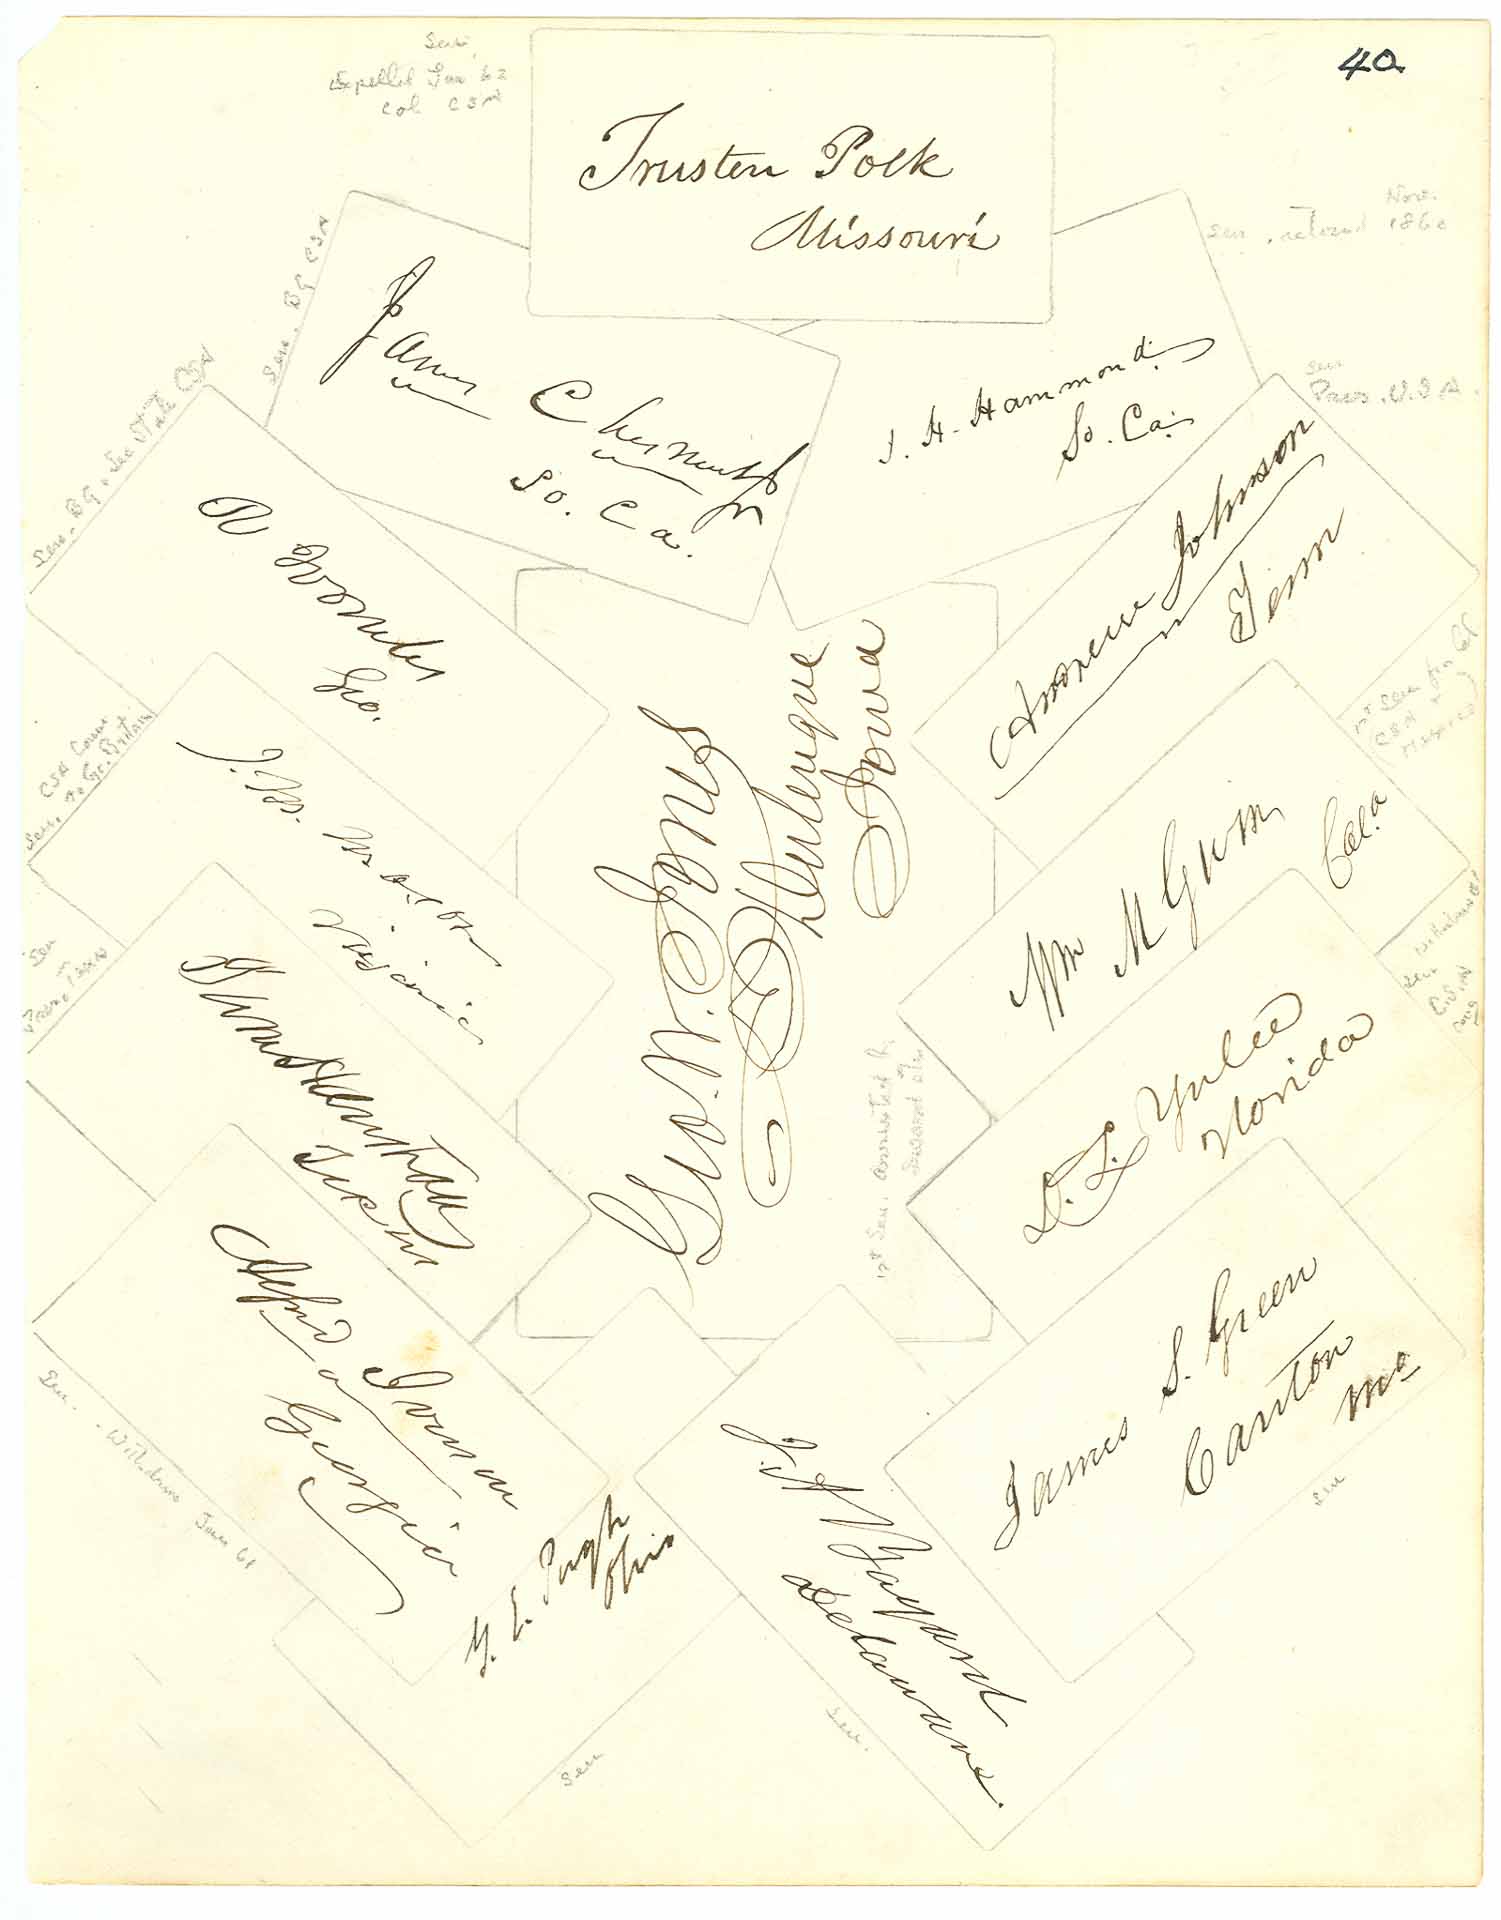 40
Sen.
Expelled Jan 62
Col CSA
Trusten Polk
Missouri
Sen. BG CSA
James Chesnut Jr
So. Ca.
Nov.
Sen. retired 1860
J. H. Hammond
So. Ca.
Sen. BG. Sec State CSA
R Toombs
Geo.
Sen
Pres. U.S.A.
Andrew Johnson
Tenn
Sen. CSA
to Gt. Britain
J. M. Mason
Virginia
Geo W. Jones
Dubuque
Iowa
1st Sen. arrested by
Seward
1st Sen from Cal
CSA
Wm M Gwin
Cal.a
Sen
Texas
John Hemphill
Texas
Sen
D. L. Yulee
Florida
Sen. Withdrew Jan 61
Alfred Iverson
Georgia
James S. Green
Canton
Mo
Sen
G. E. Pugh
Ohio
Sen
J. A. Bayard
Delaware.
Sen.